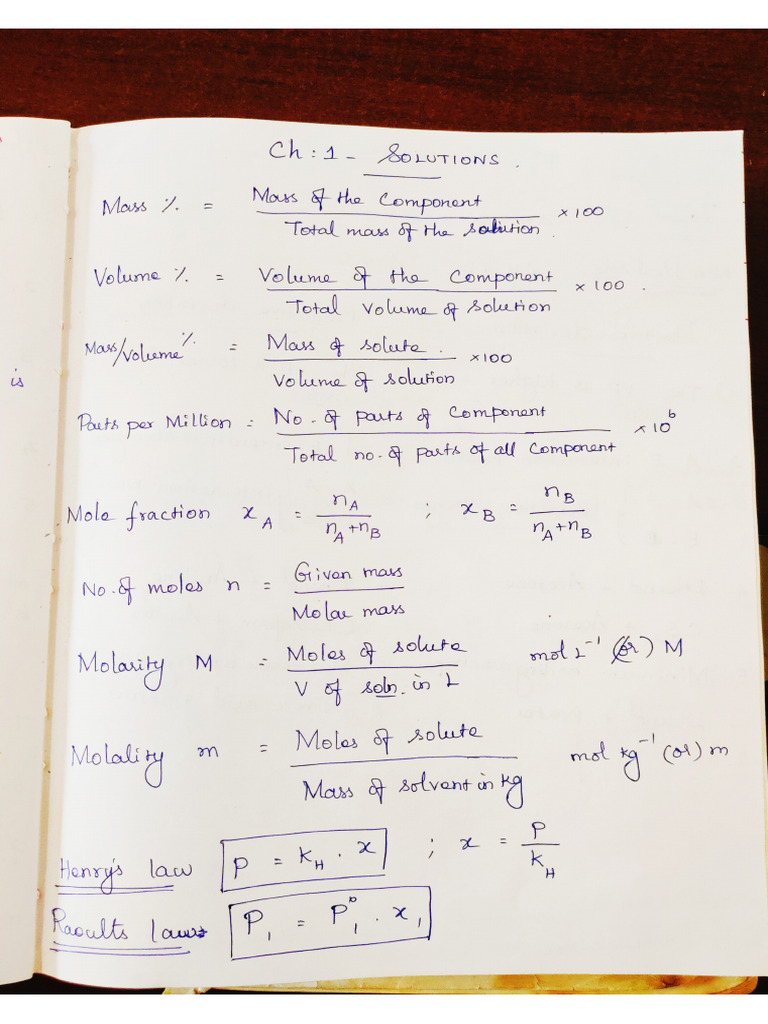 Ch : 1 - SOLUTIONS .
Mass % = Mass of the Component / Total mass of the solution × 100
Volume % = Volume of the Component / Total Volume of Solution × 100 .
Mass/Volume % = Mass of solute . / Volume of solution × 100
is
Parts per Million = No. of parts of Component / Total no. of parts of all Component × 10⁶
Mole fraction x_A = n_A / n_A + n_B ; x_B = n_B / n_A + n_B
No. of moles n = Given mass / Molar mass
Molarity M = Moles of solute / V of soln. in L mol L⁻¹ (or) M
Molality m = Moles of solute / Mass of solvent in kg mol kg⁻¹ (or) m
Henry's law P = K_H . x ; x = P / K_H
Raoults law P₁ = P₁° . x₁